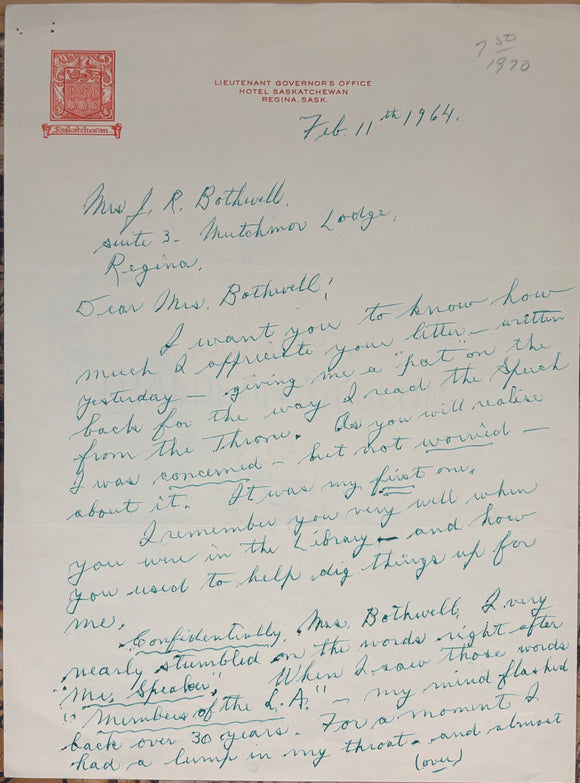 7 50
1970
Saskatchewan
LIEUTENANT GOVERNOR'S OFFICE
HOTEL SASKATCHEWAN
REGINA, SASK.
Feb. 11th 1964.
Mrs J. R. Bothwell.
suite 3 - Mutchmor Lodge,
Regina.
Dear Mrs. Bothwell!
I want you to know how
much I appreciate your letter - written
yesterday - giving me a "pat" on the
back for the way I read the Speech
from the Throne. As you will realise
I was concerned - but not worried -
about it. It was my first one.
I remember you very well when
you were in the Library - and how
you used to help dig things up for
me.
Confidentially, Mrs. Bothwell, I very
nearly stumbled on the words right after
"Mr. Speaker". When I saw those words
"Members of the L.A." - my mind flashed
back over 30 years. For a moment I
had a lump in my throat - and almost
(over)